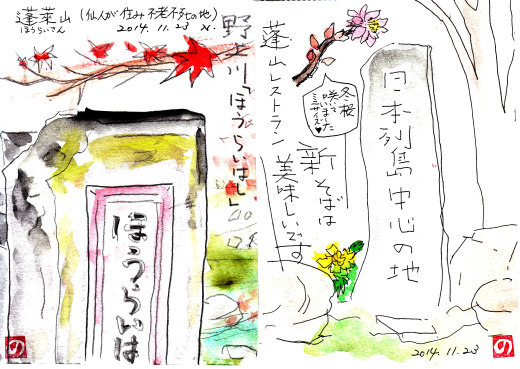 蓬莱山(仙人が住み不老不死の地)
ほうらいさん
2014.11.23
野上川「ほうらいはし」
ほうらいは
の
冬桜
咲いて
いました
ミニサイズ♥
蓬山レストラン
新そばは
美味しいです
日本列島中心の地
2014.11.23
の